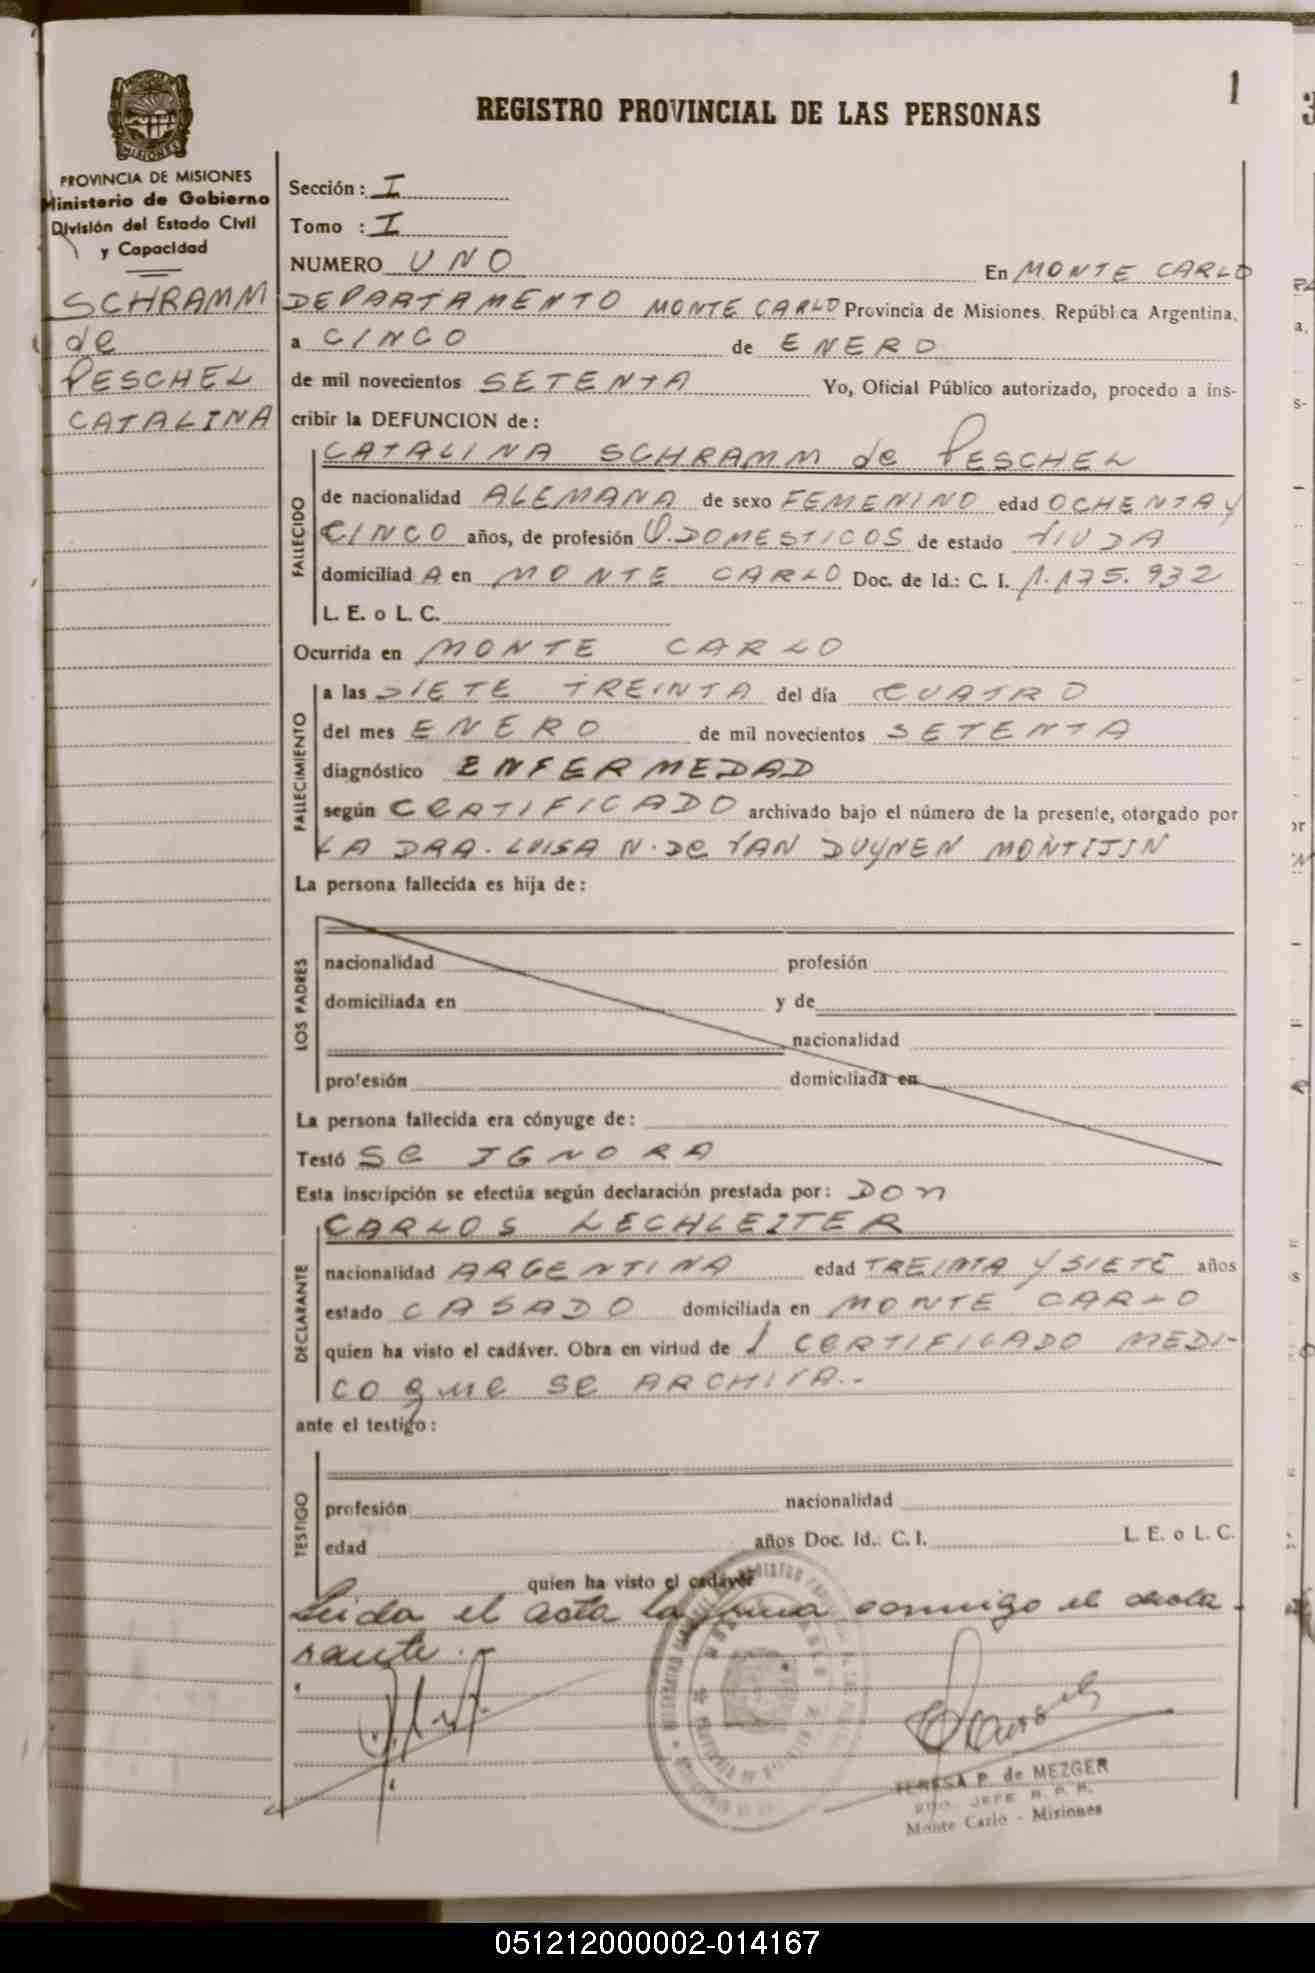 1
REGISTRO PROVINCIAL DE LAS PERSONAS
MISIONES
PROVINCIA DE MISIONES
Ministerio de Gobierno
División del Estado Civil
y Capacidad
SCHRAMM
de
PESCHEL
CATALINA
Sección: I
Tomo : I
NUMERO UNO En MONTE CARLO
DEPARTAMENTO MONTE CARLO Provincia de Misiones, República Argentina,
a CINCO de ENERO
de mil novecientos SETENTA Yo, Oficial Público autorizado, procedo a ins-
cribir la DEFUNCION de:
FALLECIDO
CATALINA SCHRAMM de PESCHEL
de nacionalidad ALEMANA de sexo FEMENINO edad OCHENTA y
CINCO años, de profesión Q.DOMESTICOS de estado VIUDA
domiciliad A en MONTE CARLO Doc. de Id.: C. I. 1.175.932
L. E. o L. C.
Ocurrida en MONTE CARLO
FALLECIMIENTO
a las SIETE TREINTA del día CUATRO
del mes ENERO de mil novecientos SETENTA
diagnóstico ENFERMEDAD
según CERTIFICADO archivado bajo el número de la presente, otorgado por
LA DRA. LUISA N. De VAN DUYNEN MONTIJIN
La persona fallecida es hija de:
LOS PADRES
nacionalidad profesión
domiciliada en y de
nacionalidad
profesión domiciliada en
La persona fallecida era cónyuge de:
Testó Se IGNORA
Esta inscripción se efectúa según declaración prestada por: DON
DECLARANTE
CARLOS LECHLEITER
nacionalidad ARGENTINA edad TREINTA y SIETE años
estado CASADO domiciliada en MONTE CARLO
quien ha visto el cadáver. Obra en virtud de 1 CERTIFICADO MEDI-
CO que se ARCHIVA.-
ante el testigo:
TESTIGO
profesión nacionalidad
edad años Doc. Id.: C. I. L. E. o L. C.
quien ha visto el cadáver
Leida el acta la firma conmigo el decla
rante.-
TERESA P. de MEZGER
JEFE R. P. P.
Monte Carlo - Misiones
051212000002-014167